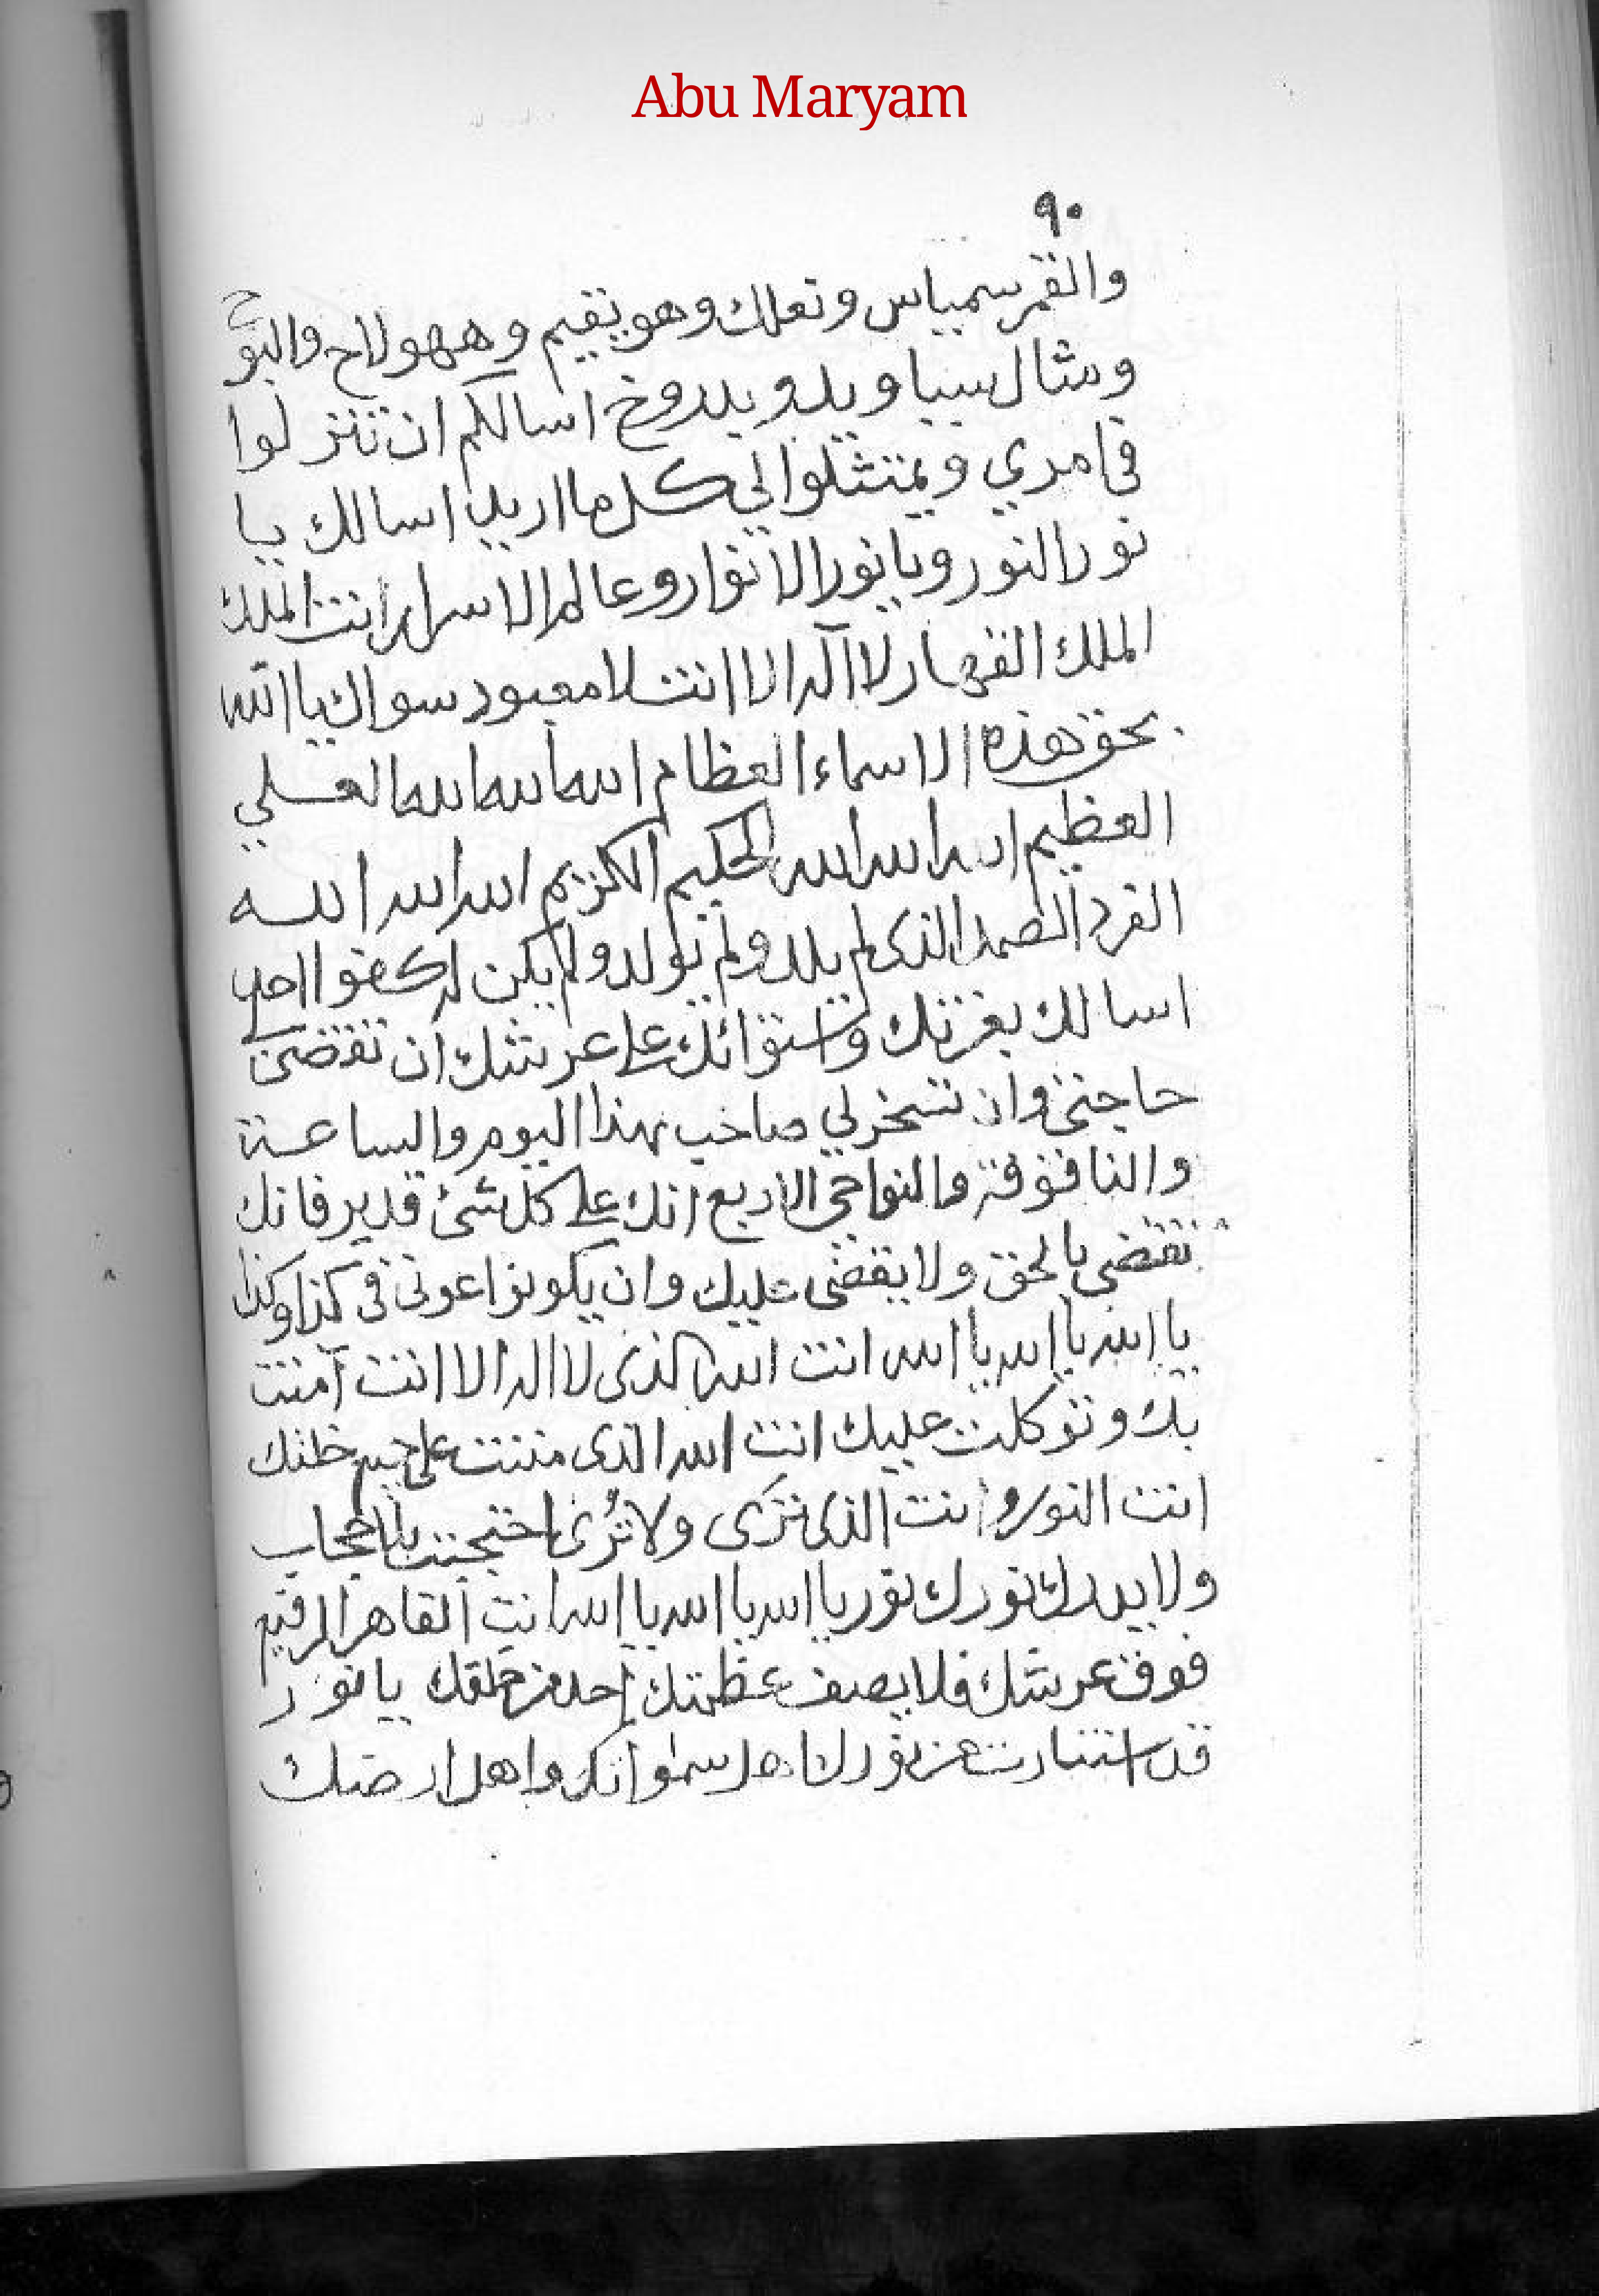 Abu Maryam
٩٠
والقمر سمياس وتعلك وهو يقيم وههولاح والبوح
ومثال سيبا ويدو يدروخ اسالكم ان تتنزلوا
في امري ويمتثلوا لي كل ما اريد اسالك يا
نور النور ويا نور الانوار وعالم الاسرار انت الملك
الملك القهار لا اله الا انت لا معبود سواك يا الله
بحق هذه الاسماء العظام الله الله الله العلي
العظيم الله الله الله الحكيم الكريم الله الله الله
الفرد الصمد الذى لم يلد ولم يولد ولم يكن له كفوا احد
اسالك بعزتك واستوائك على عرشك ان تقضى
حاجتى وان تسخر لي صاحب هذا اليوم والساعة
والنافوقة والنواحي الاربع انك على كل شئ قدير فانك
تقضى بالحق ولا يقضى عليك وان يكونوا عونى فى كذا وكذا
يا الله يا الله يا الله انت الله الذى لا اله الا انت آمنت
بك وتوكلت عليك انت الله الذى مننت على جميع خلقك
انت النور وانت الذى ترى ولا تُرى احتجبت بالحجاب
ولا يدرك نورك نور يا الله يا الله يا الله انت القاهر الرفيع
فوق عرشك فلا يصف عظمتك احد من خلقك يا نور
قد استنارت من نورك اهل سمواتك واهل ارضك